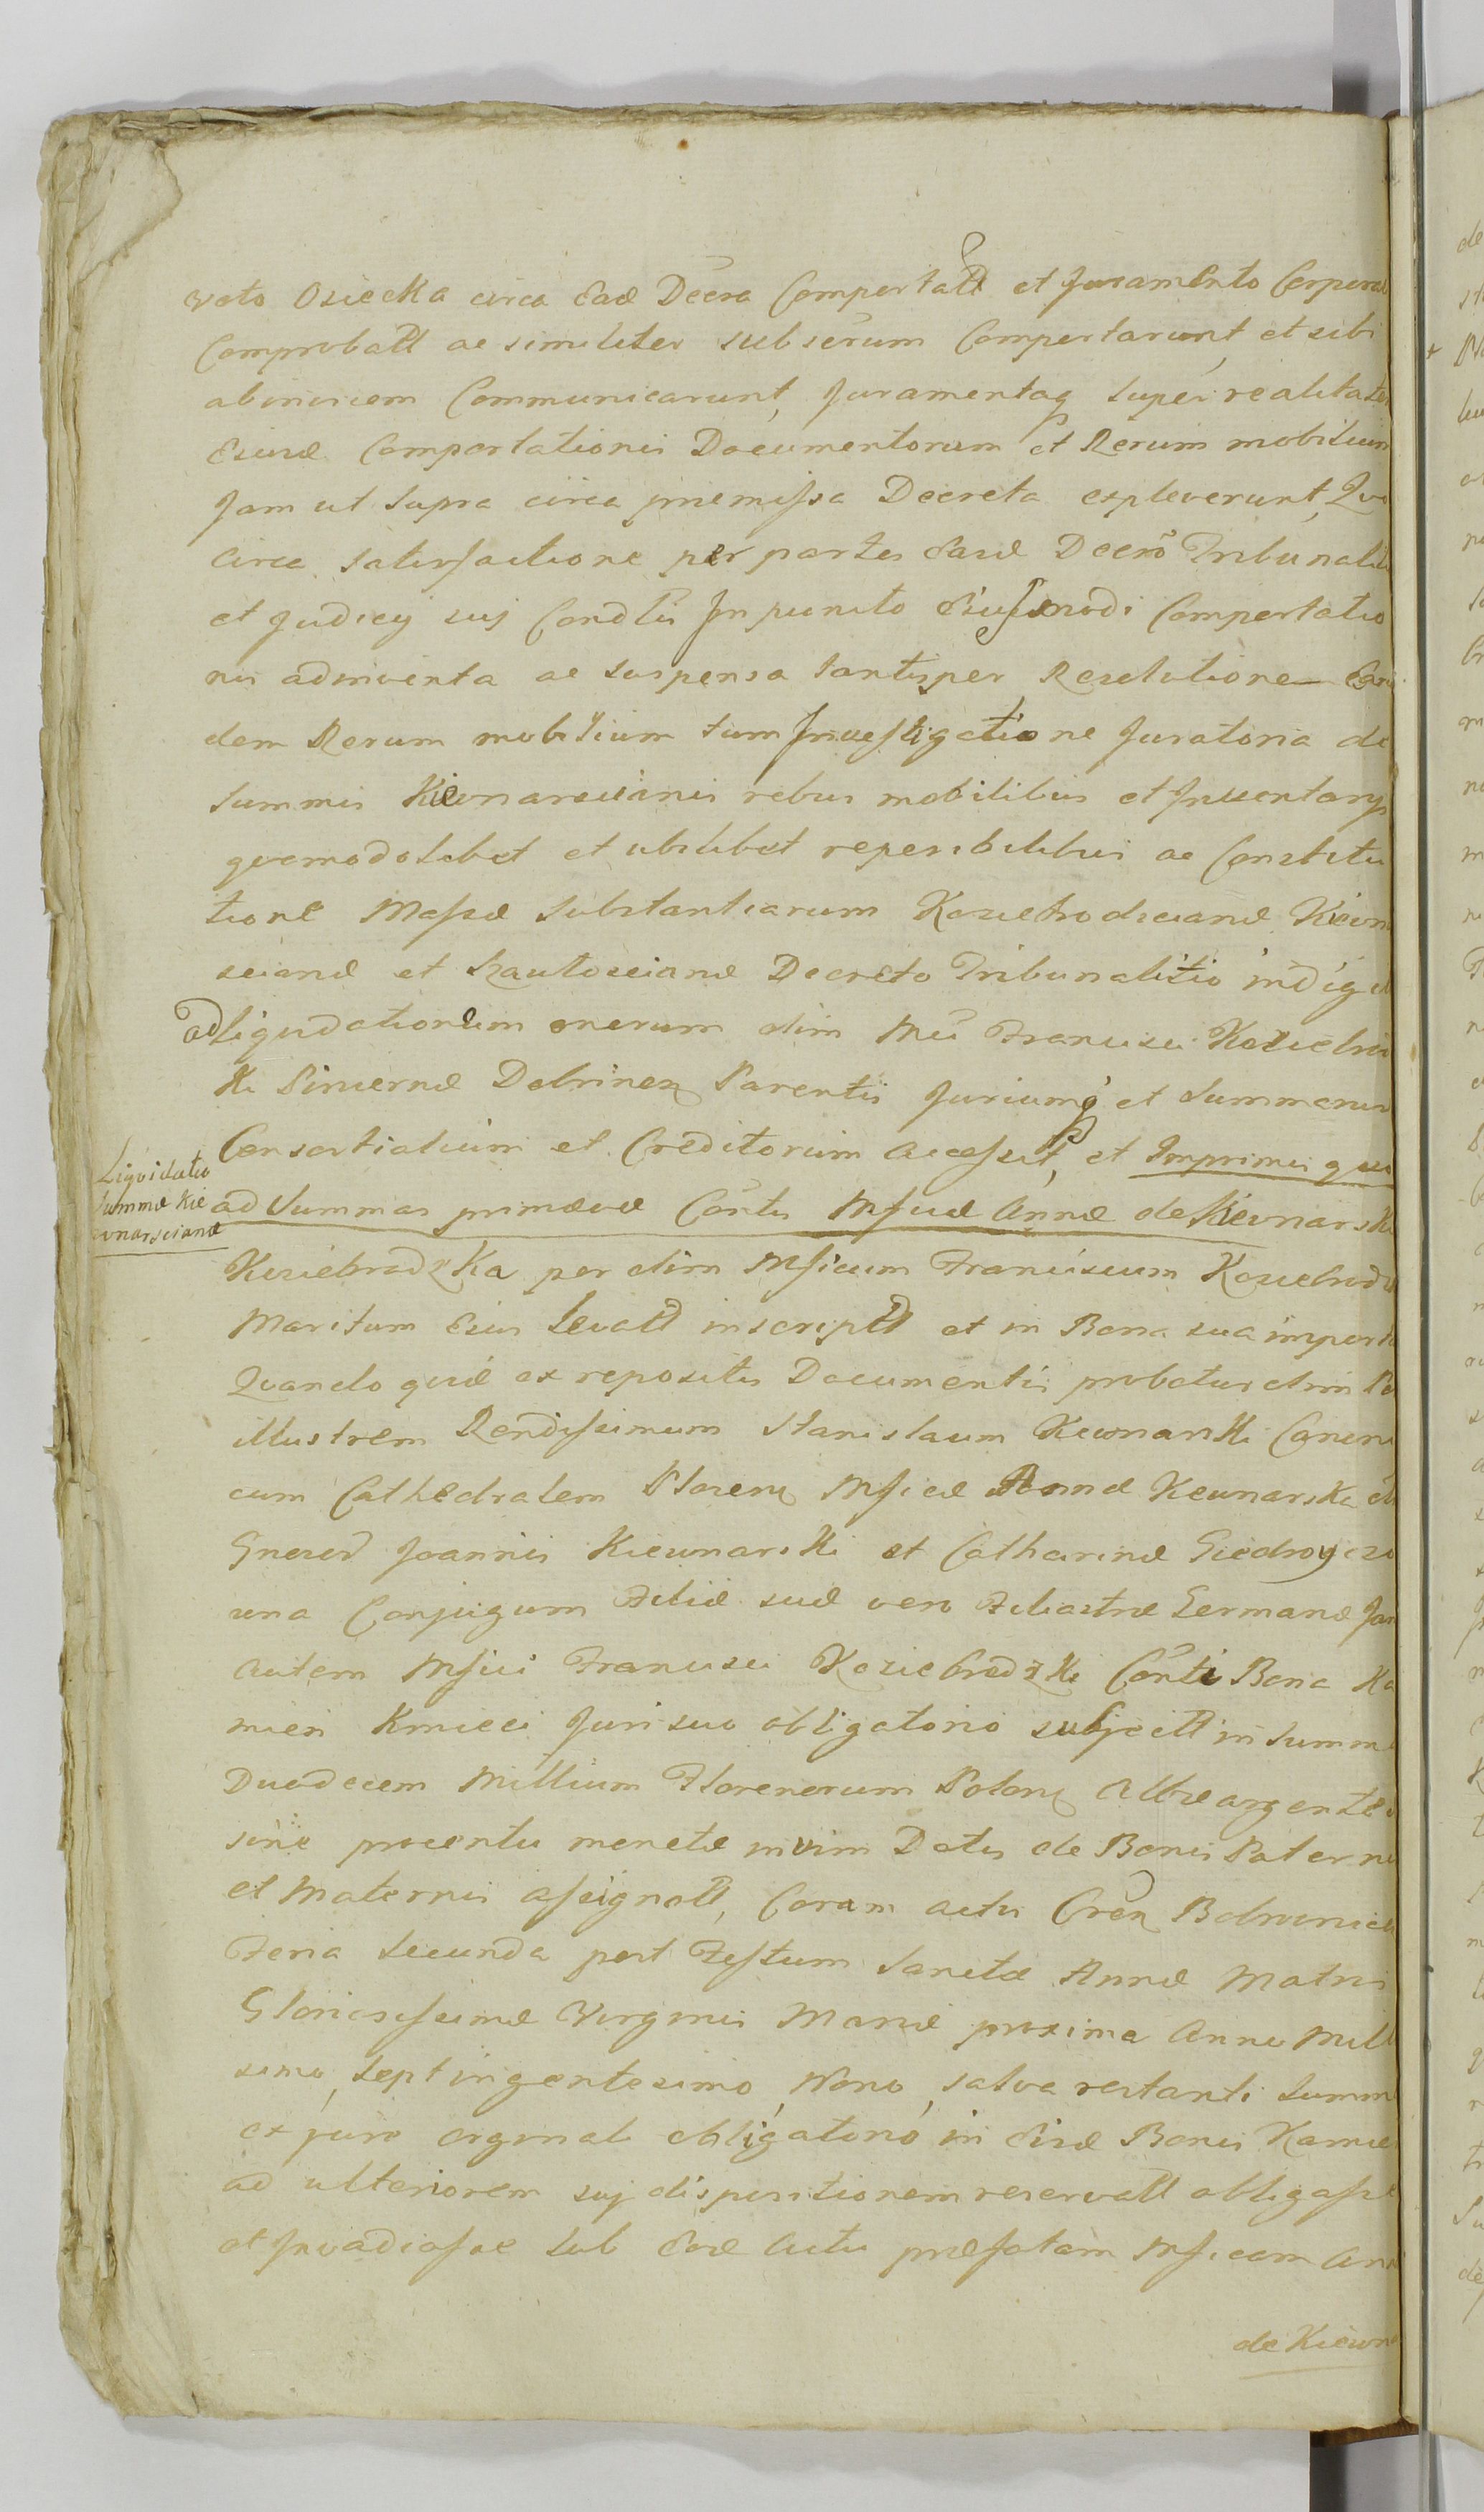 voto Osiecka circa Ead Decra Comportatt et Juramento Corporal
Comprobatt ac similiter subserum Comportarunt, et sibi
abinvicem Communicarunt, Juramentaq super realitate
Eiusd Comportationis Documentorum et Rerum mobilium
Jam ut supra circa præmissa Decreta expleverunt, Quo
circa satisfactione per partes Easd Decro Tribunaliti
et Judicy suj Condtũ In puncto Eiusmodi Comportatio
nis adinventa ac suspensa tantisper Resolutione Earu
dem Rerum mobilium tum Investigatione Juratoria de
summis Kiewnarscianis rebus mobilibus et Inventarys
quomodolibet et ubilibet reperibilibus ac Constitu
tione Massæ substantiarum Koziebrodscianæ Kiewn
scianæ et Decreto Tribunalitio indig
ad liqudationem onerum olim Mci Francisci Koziebro
ki Pincernæ Dobrinen Parentis Juriumq et summarum
Consortialium et Creditorum accessit, et Imprimis qua
Liqvidatio
summæ Kie
wnarscianæ
ad summas primævæ Contis Mficæ Annæ de Kiewnarski
Koziebrodzka per olim Mficum Franciscum Koziebrodz
Maritum Eius Levatt inscriptt et in Bona sua import
Quando quid ex repositis Documentis probatur olim Pe
illustrem Rendissimum Stanislaum Kiewnarski Canoni
cum Cathedralem Plocen Mficæ Annæ Kewnarska
Gnerod Joannis Kiewnarski et Catharinæ Giedroycio
wna Conjugum Filiæ suæ vero Filiastræ Germanæ Jam
autem Mfici Francisci Koziebrodzki Conti Bona Ka
mien Kmieci Juri suo obligatorio subjectt in summ
Duodecem Millium Florenorum Polon Albæ argenteæ
sine procentu monetæ in vim Dotis de Bonis Paternis
et Maternis assignatt, Coram actis Cren Bobrownicen
Feria secunda post Festum Sanctæ Annæ Matris
Gloriosissimæ Virginis Mariæ proxima Anno Mill
simo, septingentesimo, Nono, salva restanti summ
ex jure orginali obligatorio in Eisd Bonis Kamie
ad ulteriorem suj dispositionem reservatt obligasse
et Invadiasse sub Eosd Actu præfatam Mficam An
de Kiewn